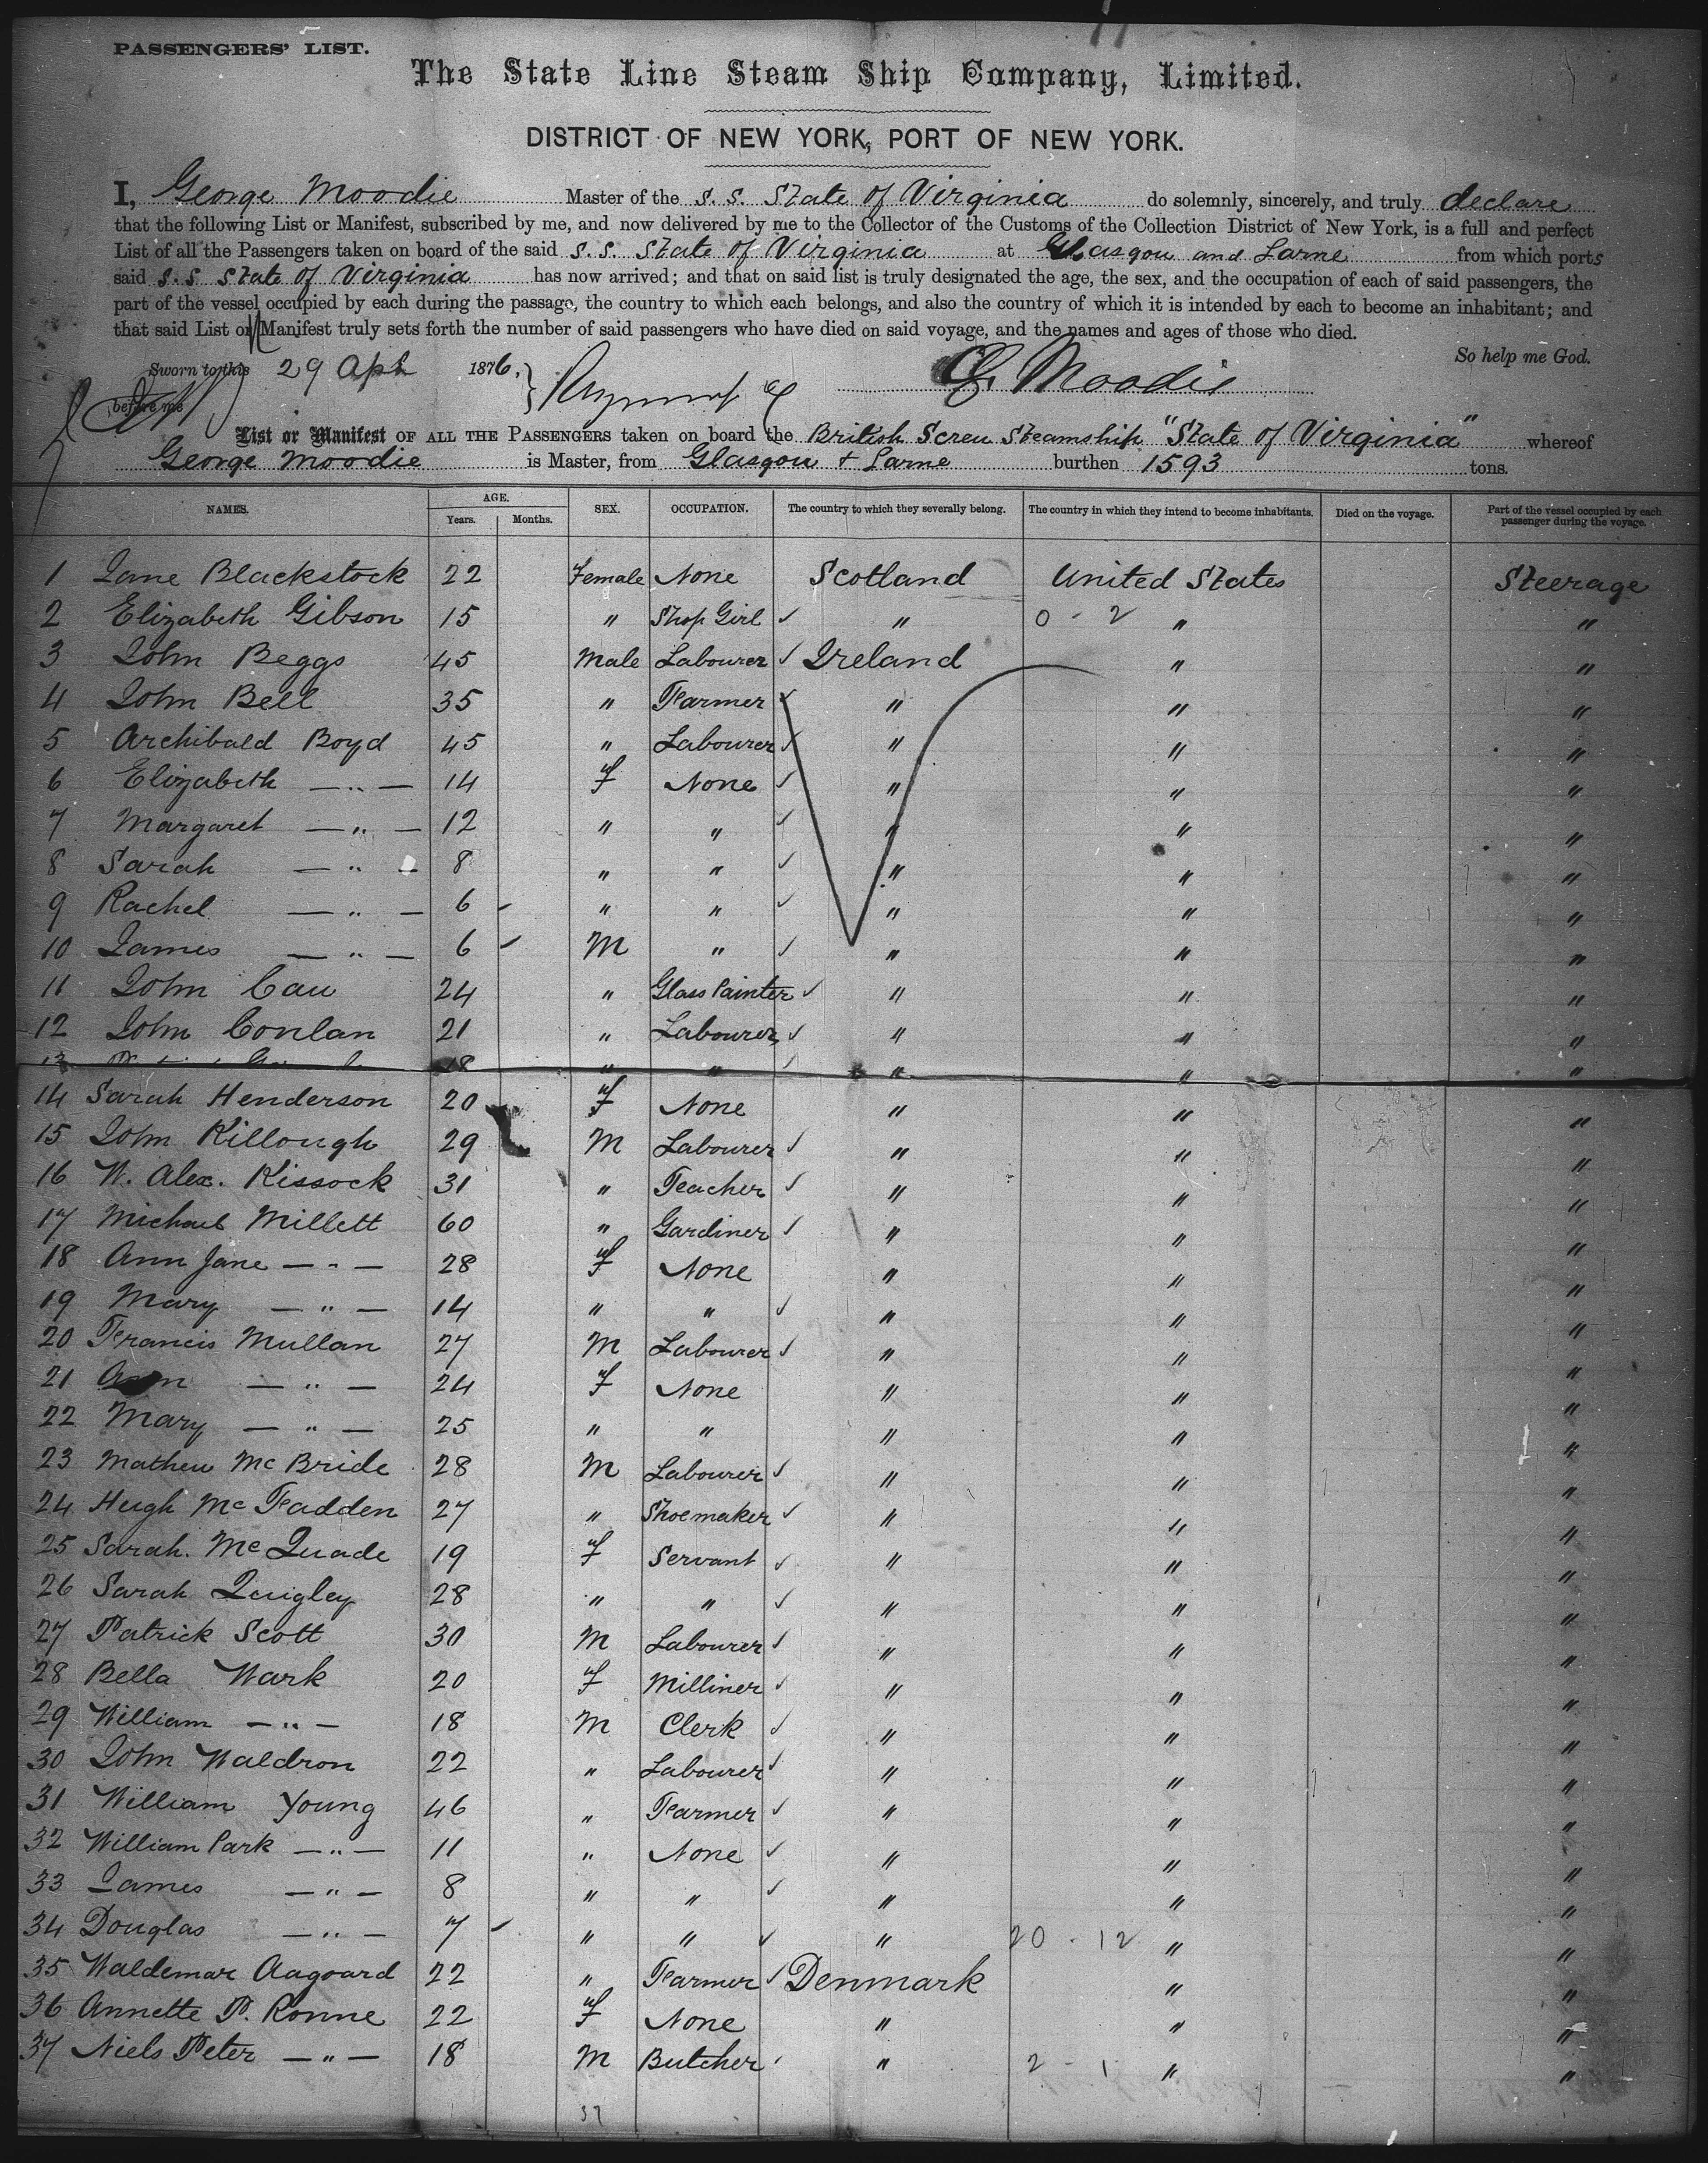 PASSENGERS' LIST.
The State Line Steam Ship Company, Limited.
DISTRICT OF NEW YORK, PORT OF NEW YORK.
I, George Moodie Master of the S. S. State of Virginia do solemnly, sincerely, and truly declare
that the following List or Manifest, subscribed by me, and now delivered by me to the Collector of the Customs of the Collection District of New York, is a full and perfect
List of all the Passengers taken on board of the said S. S. State of Virginia at Glasgow and Larne from which ports
said S. S State of Virginia has now arrived; and that on said list is truly designated the age, the sex, and the occupation of each of said passengers, the
part of the vessel occupied by each during the passage, the country to which each belongs, and also the country of which it is intended by each to become an inhabitant; and
that said List or Manifest truly sets forth the number of said passengers who have died on said voyage, and the names and ages of those who died.
So help me God.
Sworn to this 29 Apl 1876,
before me
G. Moodie
List or Manifest OF ALL THE PASSENGERS taken on board the British Screw Steamship "State of Virginia" whereof
George Moodie is Master, from Glasgow + Larne burthen 1593 tons.
NAMES. AGE. Years. Months. SEX. OCCUPATION. The country to which they severally belong. The country in which they intend to become inhabitants. Died on the voyage. Part of the vessel occupied by each passenger during the voyage.
1 Jane Blackstock 22 Female None Scotland United States Steerage
2 Elizabeth Gibson 15 " Shop Girl ✓ " 0 - 2 " "
3 John Beggs 45 Male Labourer ✓ Ireland " "
4 John Bell 35 " Farmer ✓ " " "
5 Archibald Boyd 45 " Labourer ✓ " " "
6 Elizabeth — " — 14 f None ✓ " " "
7 Margaret — " — 12 " " ✓ " " "
8 Sarah — " — 8 " " ✓ " " "
9 Rachel — " — 6 " " ✓ " " "
10 James — " — 6 M " ✓ " " "
11 John Cau 24 " Glass Painter ✓ " " "
12 John Conlan 21 " Labourer ✓ " " "
13 18 " " ✓ " " "
14 Sarah Henderson 20 f None " " "
15 John Killough 29 M Labourer ✓ " " "
16 W. Alex. Kissock 31 " Teacher ✓ " " "
17 Michael Millett 60 " Gardiner ✓ " " "
18 Ann Jane — " — 28 f None " " "
19 Mary — " — 14 " " ✓ " " "
20 Francis Mullan 27 M Labourer ✓ " " "
21 Ann — " — 24 f None " " "
22 Mary — " — 25 " " " " "
23 Mathew Mc Bride 28 M Labourer ✓ " " "
24 Hugh Mc Fadden 27 " Shoemaker ✓ " " "
25 Sarah. Mc Quade 19 f Servant ✓ " " "
26 Sarah Quigley 28 " " ✓ " " "
27 Patrick Scott 30 M Labourer ✓ " " "
28 Bella Wark 20 f Milliner ✓ " " "
29 William — " — 18 M Clerk ✓ " " "
30 John Waldron 22 " Labourer ✓ " " "
31 William Young 46 " Farmer ✓ " " "
32 William Park — " — 11 " None ✓ " " "
33 James — " — 8 " " ✓ " " "
34 Douglas — " — 7 " " ✓ " 20 - 12 " "
35 Waldemar Aagaard 22 " Farmer ✓ Denmark " "
36 Annette P. Ronne 22 f None " " "
37 Niels Peter — " — 18 M Butcher ✓ " 2 - 1 " "
37